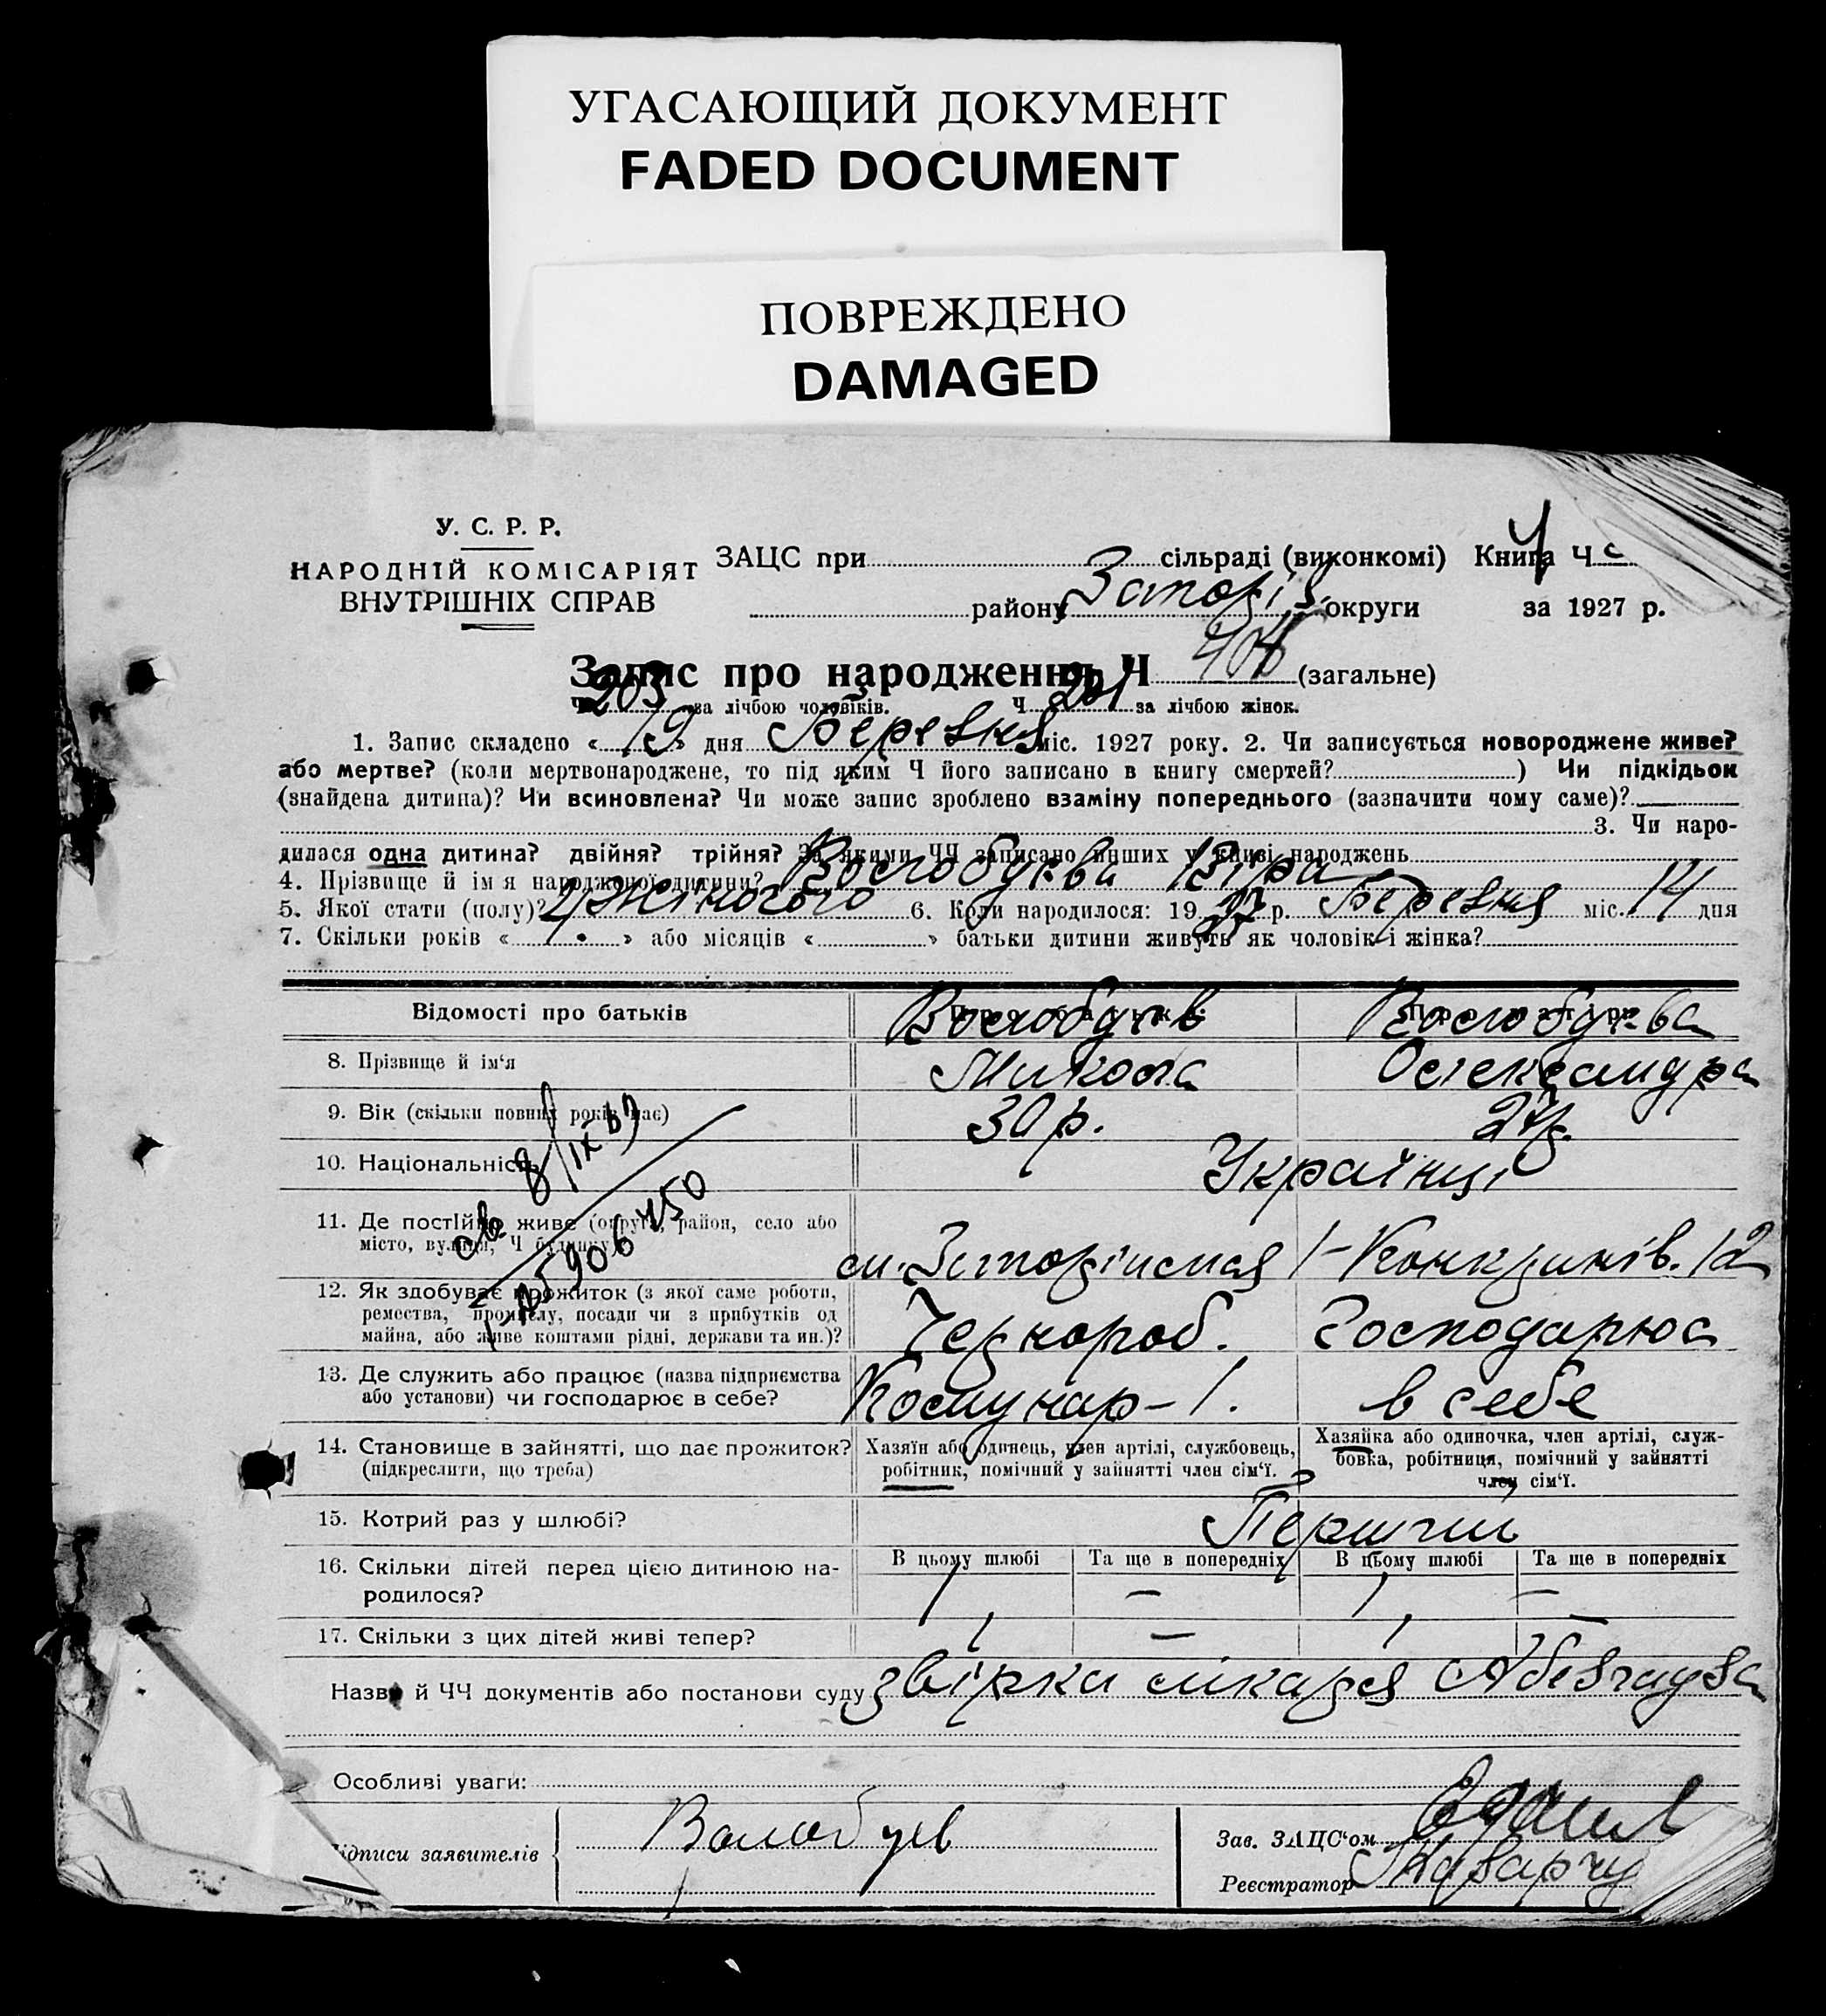 УГАСАЮЩИЙ ДОКУМЕНТ
FADED DOCUMENT
ПОВРЕЖДЕНО
DAMAGED
У. С. Р. Р.
НАРОДНІЙ КОМІСАРІЯТ
ВНУТРІШНІХ СПРАВ
ЗАЦС при сільраді (виконкомі) Книга Ч
району Запоріз. округи за 1927 р.
Запис про народження Ч 404 (загальне)
Ч 203 за лічбою чоловіків. Ч 201 за лічбою жінок.
1. Запис складено « 19 » дня Березня міс. 1927 року. 2. Чи записується новороджене живе?
або мертве? (коли мертвонароджене, то під яким Ч його записано в книгу смертей? ) Чи підкідьок
(знайдена дитина)? Чи всиновлена? Чи може запис зроблено взаміну попереднього (зазначити чому саме)?
3. Чи наро-
дилася одна дитина? двійня? трійня? За якими ЧЧ записано инших у книзі народжень
4. Прізвище й ім я народженої дитини? Волобуєва Віра
5. Якої стати (полу)? Жіночого 6. Коли народилося: 1927 р. Березня міс. 14 дня
7. Скільки років « » або місяців « » батьки дитини живуть як чоловік і жінка?
Відомості про батьків Про батька: Про матір:
Волобуєв Волобуєва
8. Прізвище й ім'я Микола Олександра
9. Вік (скільки повних років має) 30 р. 27 р.
10. Національність Українці
11. Де постійно живе (округа, район, село або
місто, вулиця, Ч будинку)
12. Як здобуває прожиток (з якої саме роботи,
ремества, промислу, посади чи з прибутків од
майна, або живе коштами рідні, держави та ин.)? Чернороб. Господарює
13. Де служить або працює (назва підприємства
або установи) чи господарює в себе? Комунар-1. в себе
14. Становище в зайнятті, що дає прожиток?
(підкреслити, що треба)
Хазяїн або одинець, член артілі, службовець,
робітник, помічний у зайнятті член сім'ї.
Хазяйка або одиночка, член артілі, служ-
бовка, робітниця, помічний у зайнятті
член сім'ї.
15. Котрий раз у шлюбі? Перший
В цьому шлюбі Та ще в попередніх В цьому шлюбі Та ще в попередніх
16. Скільки дітей перед цією дитиною на-
родилося? 1 – 1 –
17. Скільки з цих дітей живі тепер? 1 – 1 –
Назва й ЧЧ документів або постанови суду лікаря
Особливі уваги:
підписи заявителів Волобуєв
Зав. ЗАЦС'ом
Реєстратор